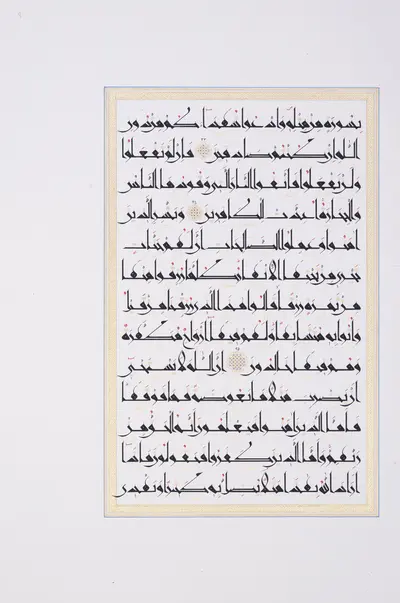 بسورة من مثله وادعوا شهداءكم من دون
الله إن كنتم صادقين فإن لم تفعلوا
ولن تفعلوا فاتقوا النار التي وقودها الناس
والحجارة أعدت للكافرين وبشر الذين
آمنوا وعملوا الصالحات أن لهم جنات
تجري من تحتها الأنهار كلما رزقوا منها
من ثمرة رزقا قالوا هذا الذي رزقنا من قبل
وأتوا به متشابها ولهم فيها أزواج مطهرة
وهم فيها خالدون إن الله لا يستحيي
أن يضرب مثلا ما بعوضة فما فوقها
فأما الذين آمنوا فيعلمون أنه الحق من
ربهم وأما الذين كفروا فيقولون ماذا
أراد الله بهذا مثلا يضل به كثيرا ويهدي